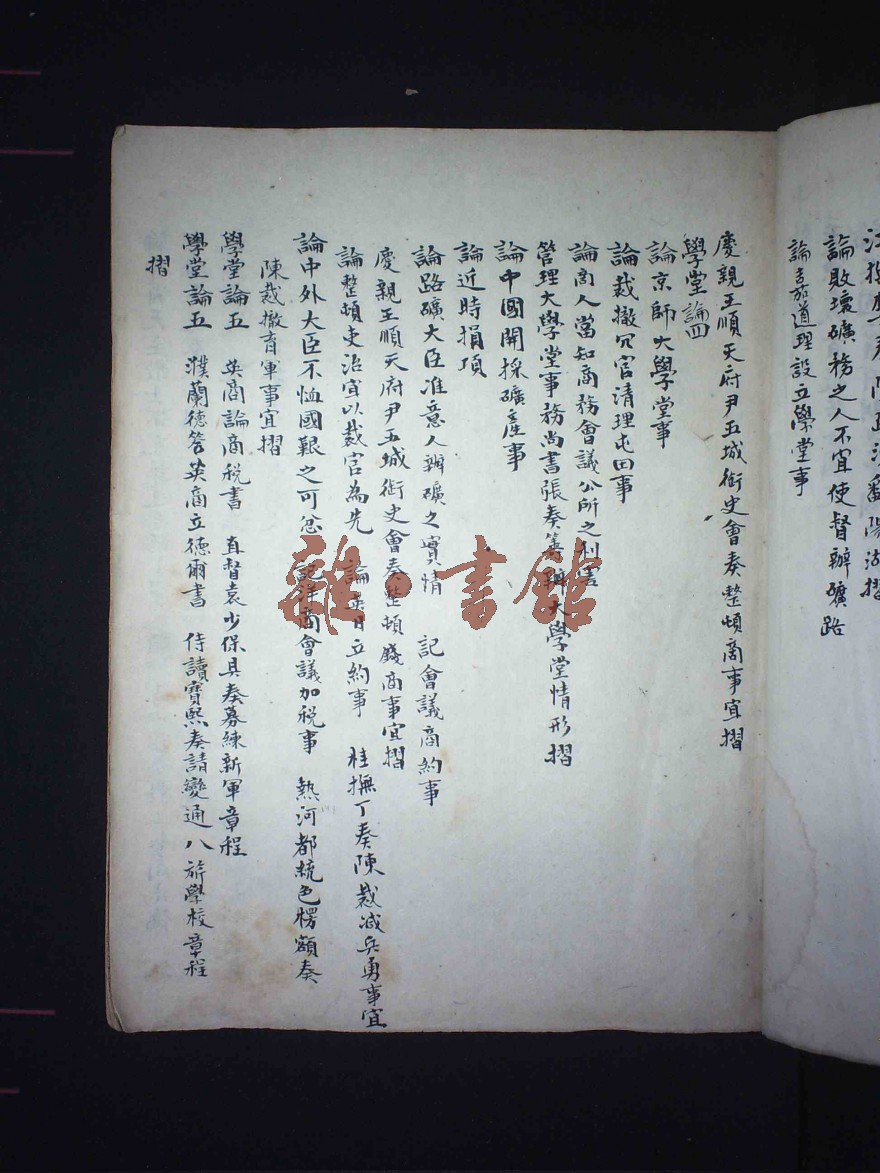 論敗壞礦務之人不宜使督辦礦路
道理設立學堂事
慶親王順天府尹五城御史會奏整頓商事宜摺
學堂論四
論京師大學堂事
論裁撤冗官清理屯田事
論商人當知商務會議公所之利害
管理大學堂事務尚書張奏籌辦大學堂情形摺
論中國開採礦產事
論近時捐項
論路礦大臣准意人辦礦之實情 記會議商約事
慶親王順天府尹五城御史會奏整頓錢商事宜摺
論整頓吏治宜以裁官為先 論英日立約事 桂撫丁奏陳裁減兵勇事宜
論中外大臣不恤國艱之可忿 記洋商會議加稅事 熱河都統色楞額奏
陳裁撤育軍事宜摺
學堂論五 英商論商稅書 直督袁少保具奏募練新軍章程
學堂論五 濮蘭德答英商立德爾書 侍讀寶熙奏請變通八旂學校章程
摺
雜·書館